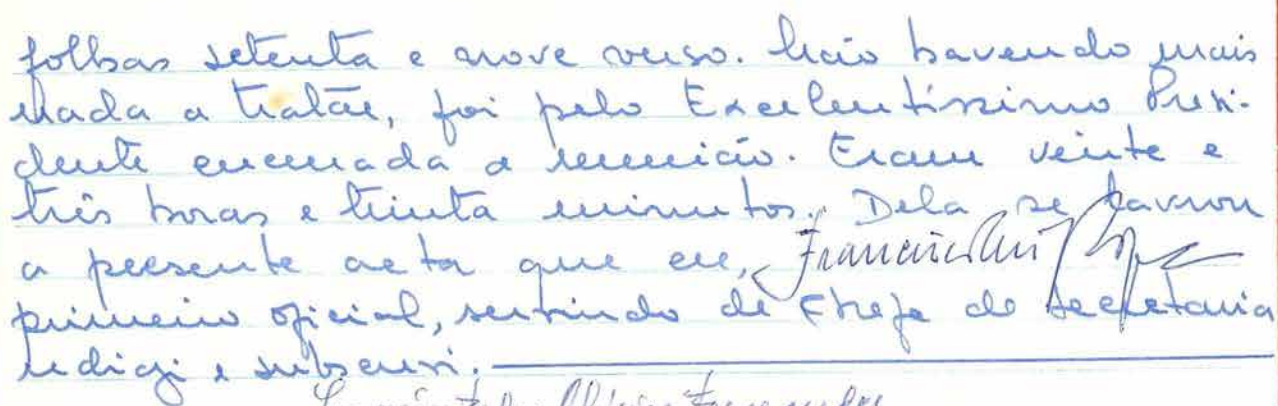 folhas setenta e nove verso. Não havendo mais
nada a tratar, foi pelo Excelentíssimo Presi-
dente encerrada a reunião. Eram vinte e
três horas e trinta minutos. Dela se lavrou
a presente acta que eu, Francisco
primeiro oficial, servindo de Chefe de Secretaria
redigi e subscrevi.